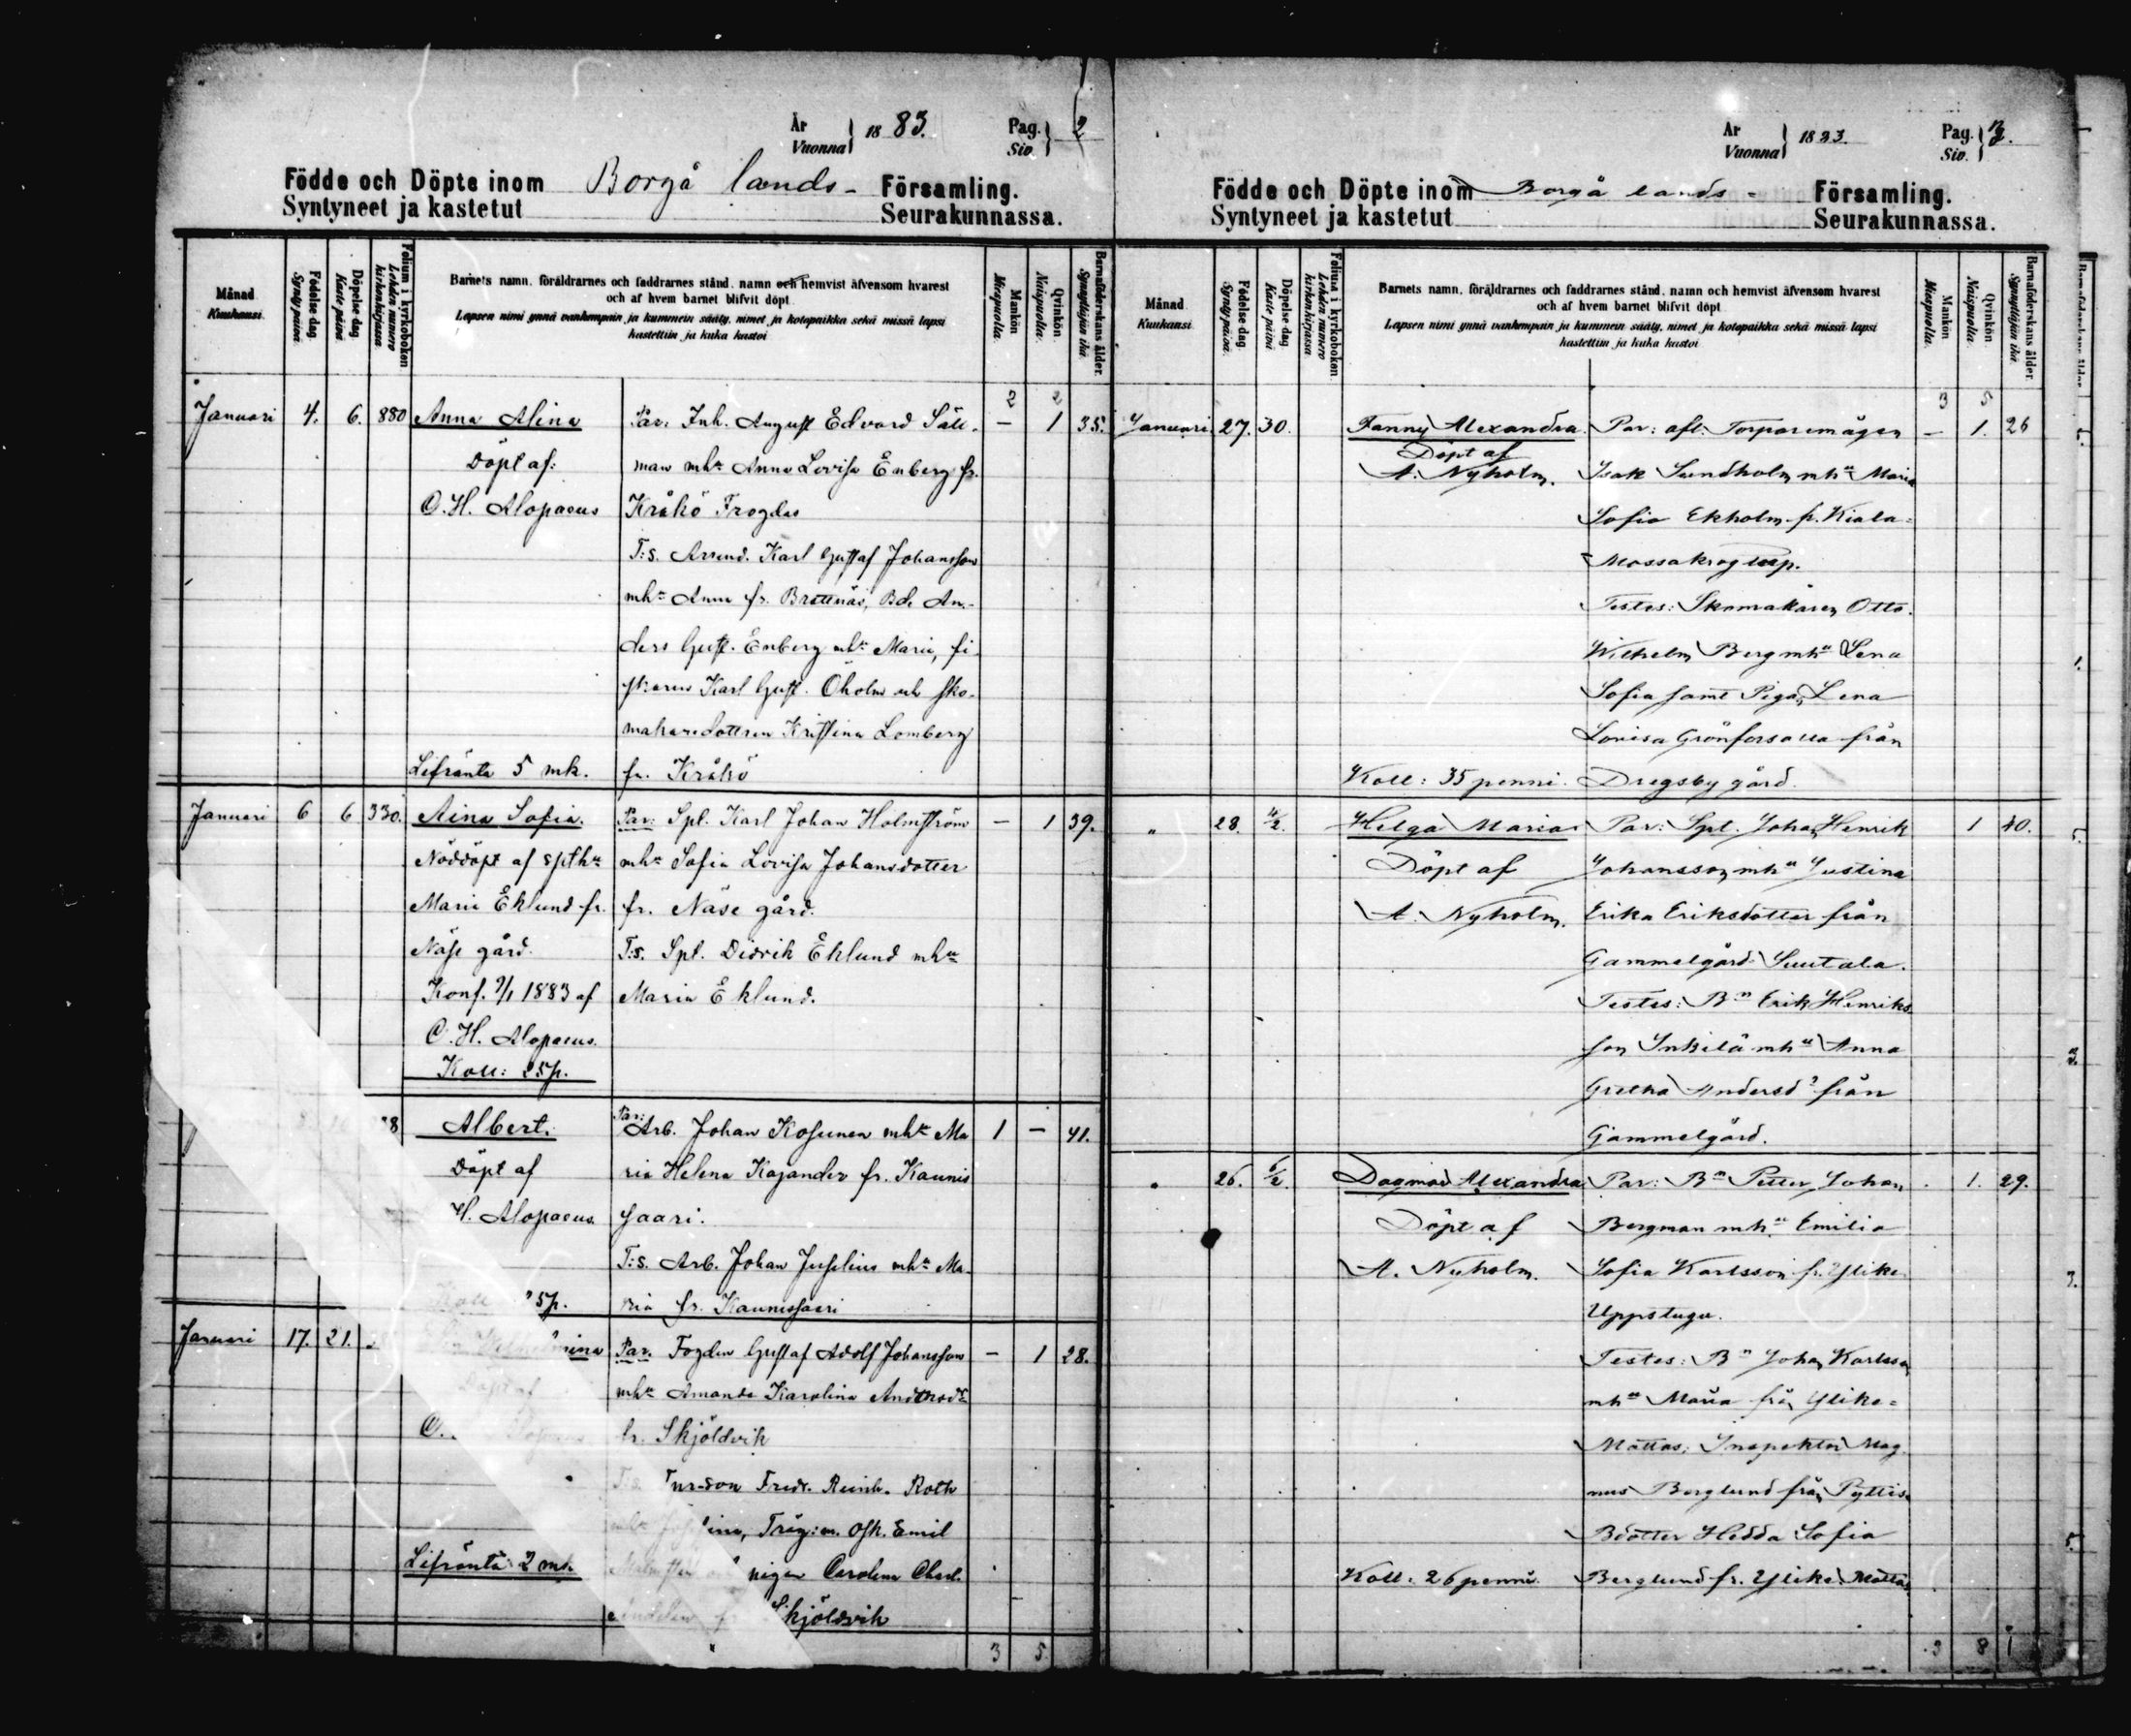 År 1883. Pag. 2
Vuonna Siv.
Födde och Döpte inom Borgå lands- Församling.
Syntyneet ja kastetut Seurakunnassa.
Månad Kuukausi.
Födelse dag. Synty päivä.
Döpelse dag. Kaste päivä
Folium i kyrkoboken. Lehden numero kirkonkirjassa
Barnets namn, föräldrarnes och faddrarnes stånd, namn och hemvist äfvensom hvarest
och af hvem barnet blifvit döpt.
Lapsen nimi ynnä vanhempain ja kummein sääty, nimet ja kotopaikka sekä missä lapsi
kastettiin ja kuka kastoi
Mankön Miespuolia.
Qvinkön Naispuolia.
Barnaföderskans ålder. Synnyttäjän ikä.
2 2
Januari 4. 6. 880 Anna Alina Par. Inh. August Edvard Säll- — 1 35.
Döpt af: man mhu Anna Lovisa Enberg fr.
O. H. Alopaeus Kråkö Frogdas
T:s. Arrend. Karl Gustaf Johansson
mhu Anna fr. Brattnäs, Bd. An-
ders Gust. Enberg mhu Maria, fi-
skaren Karl Gust. Öholm och sko-
makaredottren Kristina Lomberg
Lifränta 5 mk. fr. Kråkö
Januari 6 6 330. Aina Sofia. Par: Spl. Karl Johan Holmström — 1 39.
Nöddöpt af splhu mhu Sofia Lovisa Johansdotter
Maria Eklund fr. fr. Näse gård.
Näse gård. T:s. Spl. Didrik Eklund mhu
Konf. 7/1 1883 af Maria Eklund.
O. H. Alopaeus.
Koll: 25p.
8 Albert. Par: Arb. Johan Kosunen mhu Ma 1 — 41.
Döpt af ria Helena Kajander fr. Kaunis
H. Alopaeus saari.
T:s. Arb. Johan Juselius mhu Ma-
5p. ria fr. Kaunissaari
Januari 17. 21. mina Par. Fogden Gustaf Adolf Johansson — 1 28.
Döpt af mhu Amanda Karolina Andersdr
O. Alopaeus fr. Skjöldvik
Fredr. Reinh. Roth
Träg:m. Osk. Emil
Lifränta 2 mk. pigan Carolina Charl.
fr. Skjöldvik
3 5
År 1883. Pag. 3.
Vuonna Siv.
Födde och Döpte inom Borgå lands- Församling.
Syntyneet ja kastetut Seurakunnassa.
Månad Kuukausi
Födelse dag. Synty päivä.
Döpelse dag Kaste päivä
Folium i kyrkoboken. Lehden numero kirkonkirjassa
Barnets namn, föräldrarnes och faddrarnes stånd, namn och hemvist äfvensom hvarest
och af hvem barnet blifvit döpt
Lapsen nimi ynnä vanhempain ja kummein sääty, nimet ja kotopaikka sekä missä lapsi
kastettiin ja kuka kastoi
Mankön Miespuolia.
Qvinkön Naispuolia.
Barnaföderskans ålder. Synnyttäjän ikä
3 5
Januari 27. 30. Fanny Alexandra. Par: afl. Torparemågen — 1. 26
Döpt af
A. Nyholm. Isak Sundholm mhu Maria
Sofia Ekholm fr. Kiala-
Mossakrog torp.
Testes: Skomakaren Otto.
Wilhelm Berg mhu Lena
Sofia samt Pigan Lena
Lovisa Grönforsava från
Koll: 35 penni. Dregsby gård.
" 28. 4/2. Helga Maria Par: Spl. Johan Henrik 1 40.
Döpt af Johansson mhu Justina
A. Nyholm. Erika Eriksdotter från
Gammelgård Suutala.
Testes: Bn Erik Henriks
son Inkilä mhu Anna
Gretha Andersdr från
Gammelgård.
" 26. 6/2. Dagmar Alexandra Par: Bn Petter Johan 1. 29.
Döpt af Bergman mhu Emilia
A. Nyholm. Sofia Karlsson fr. Ylike
Uppstugu.
Testes: Bn Johan Karlsson
mhu Maria från Ylike-
Mattas, Inspektor Mag
nus Berglund från Pyttis
Bdotter Hedda Sofia
Koll: 26 penni. Berglund fr. Ylike Mattas
3 8